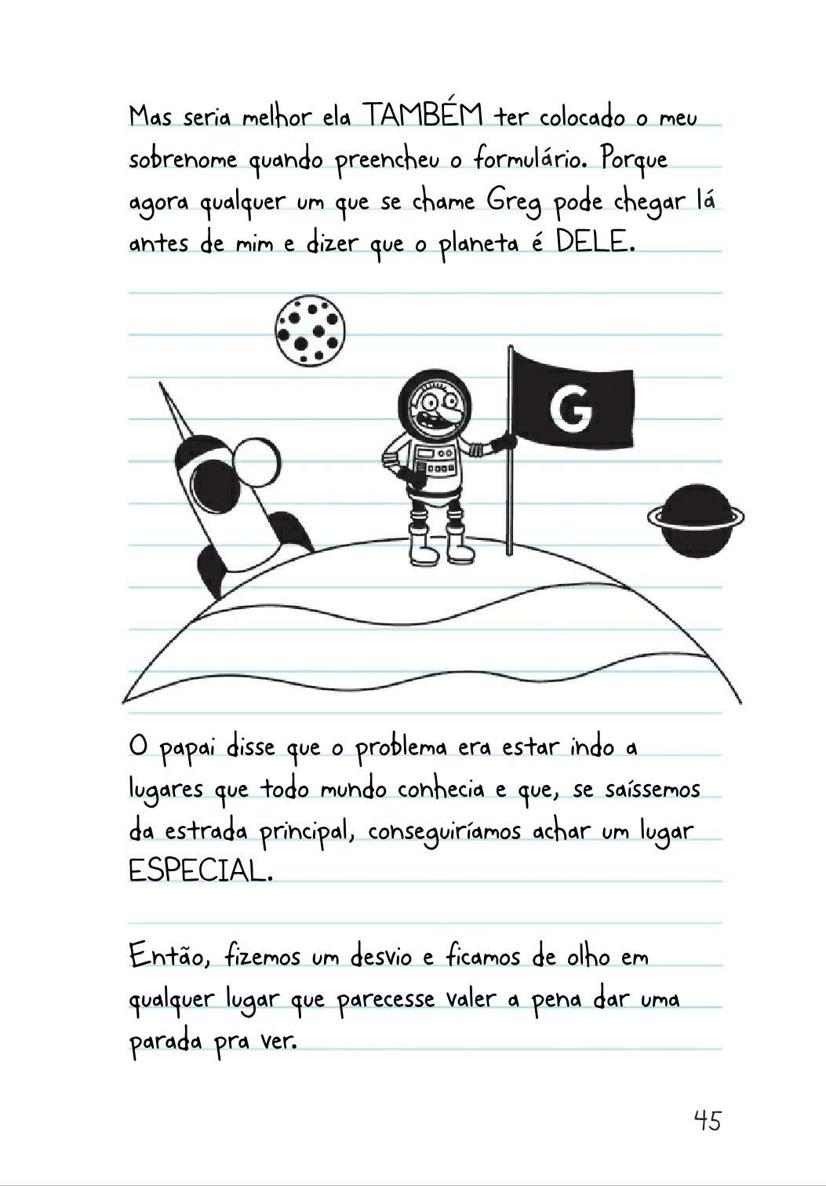 Mas seria melhor ela TAMBÉM ter colocado o meu
sobrenome quando preencheu o formulário. Porque
agora qualquer um que se chame Greg pode chegar lá
antes de mim e dizer que o planeta é DELE.
G
O papai disse que o problema era estar indo a
lugares que todo mundo conhecia e que, se saíssemos
da estrada principal, conseguiríamos achar um lugar
ESPECIAL.
Então, fizemos um desvio e ficamos de olho em
qualquer lugar que parecesse valer a pena dar uma
parada pra ver.
45